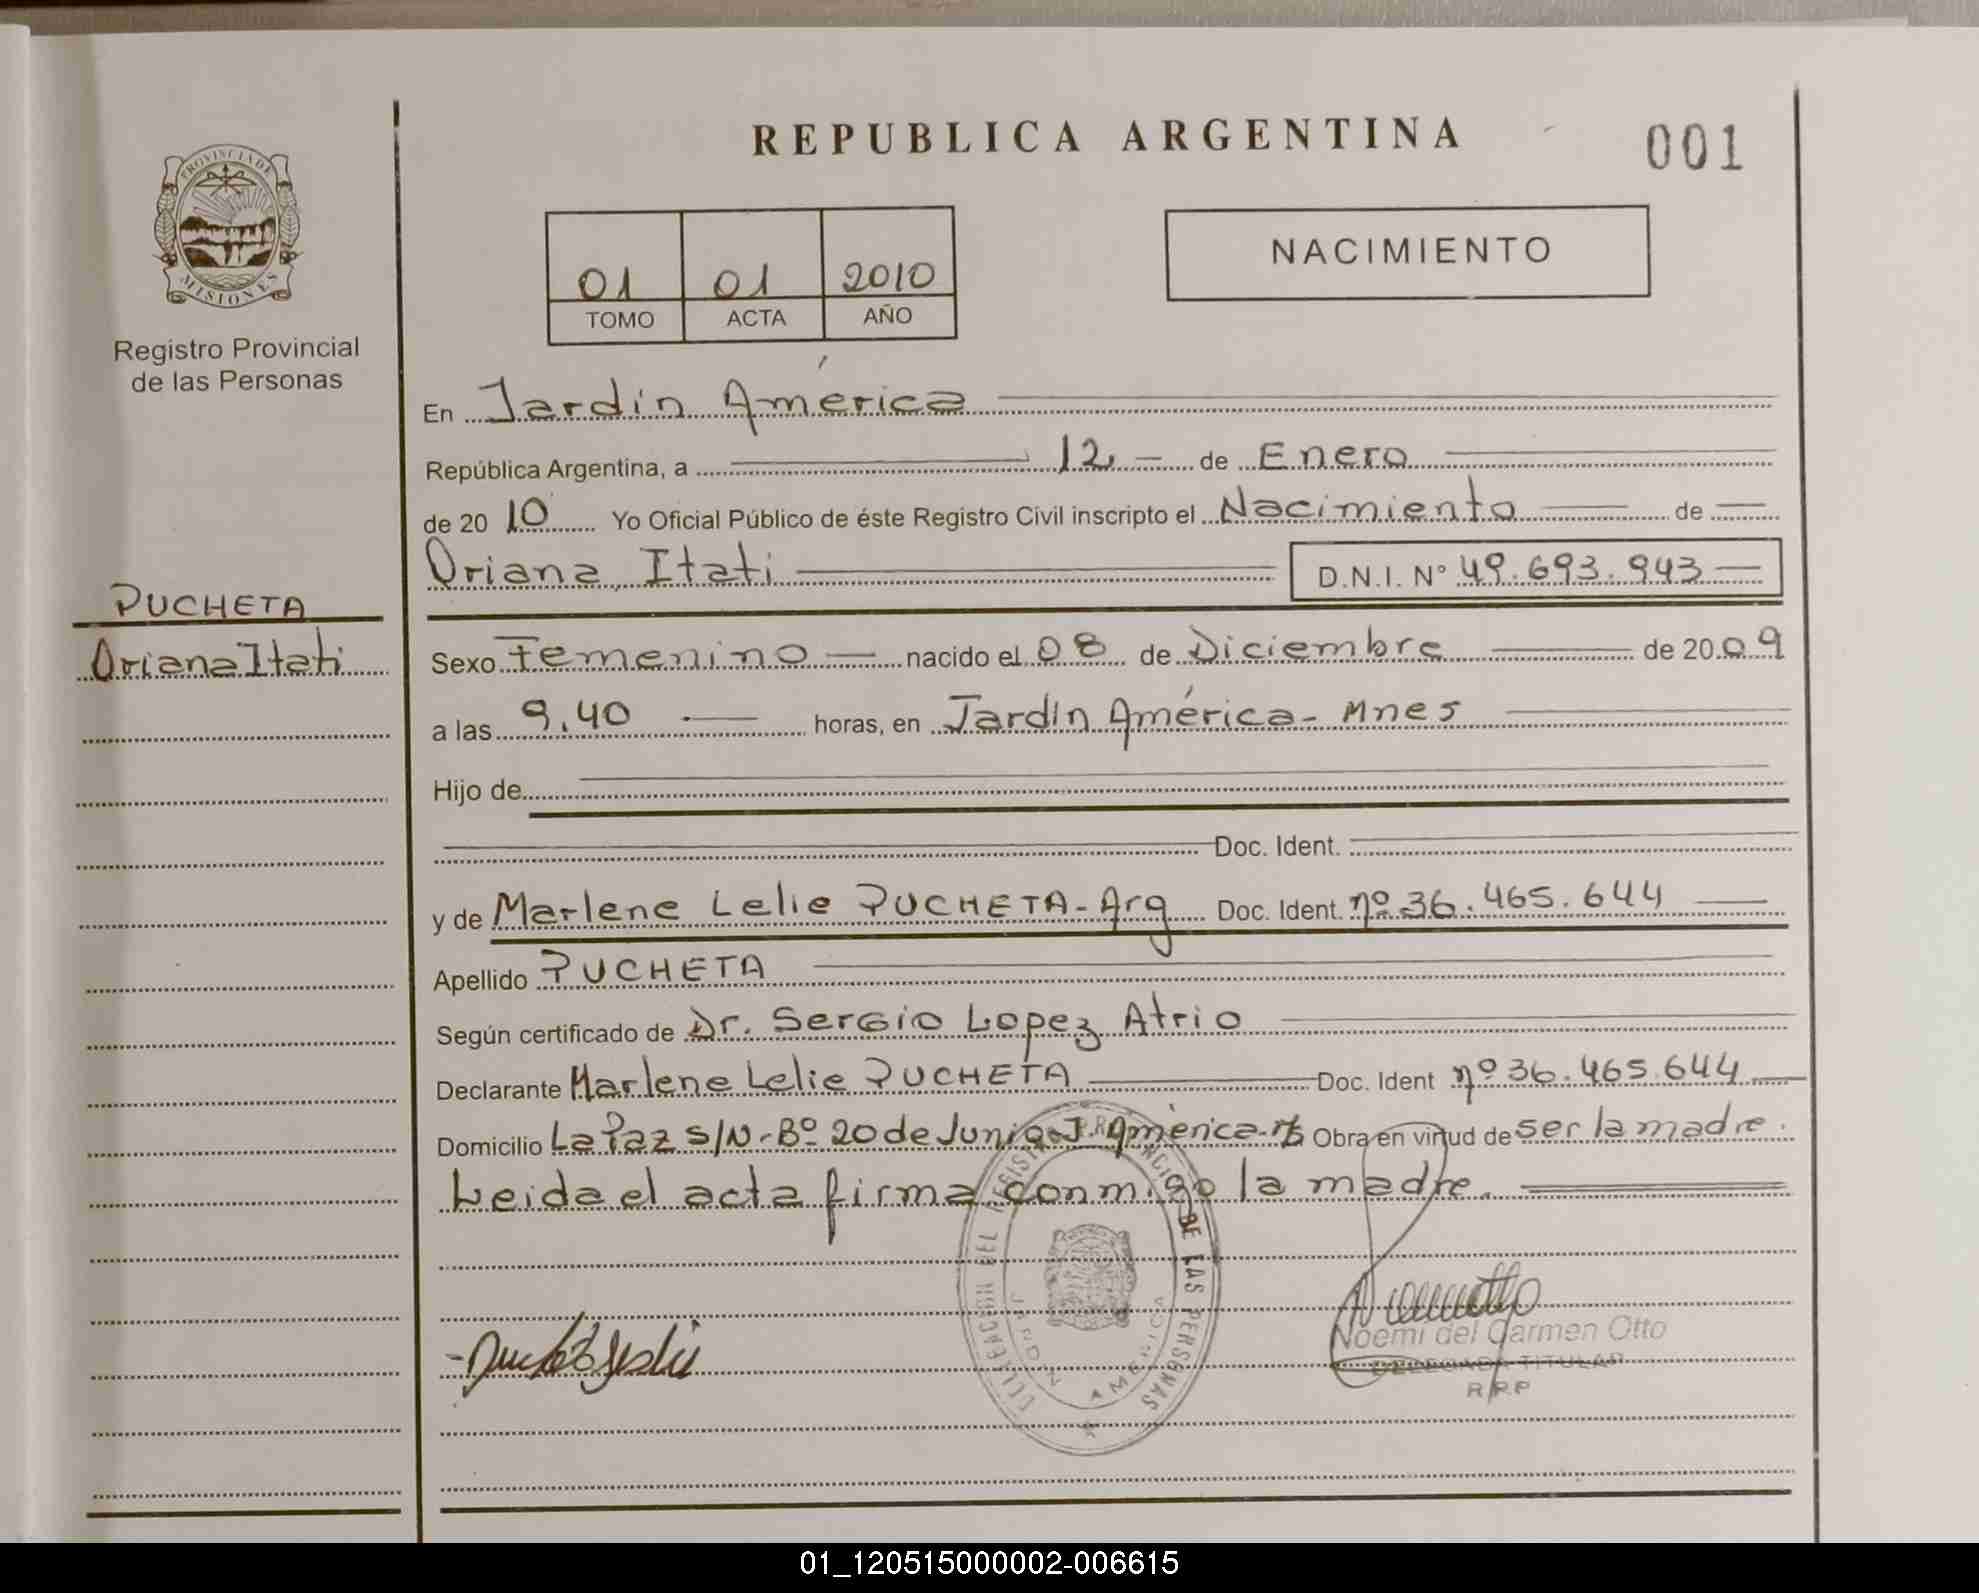 REPUBLICA ARGENTINA
001
PROVINCIA DE MISIONES
Registro Provincial
de las Personas
01 01 2010
TOMO ACTA AÑO
NACIMIENTO
En Jardín América
República Argentina, a 12 de Enero
de 2010 Yo Oficial Público de éste Registro Civil inscripto el Nacimiento de
Oriana Itati D.N.I. N° 49.693.943
PUCHETA
Oriana Itati
Sexo Femenino nacido el 08 de Diciembre de 2009
a las 9,40 horas, en Jardín América - Mnes
Hijo de
Doc. Ident.
y de Marlene Lelie PUCHETA - Arg Doc. Ident. nº 36.465.644
Apellido PUCHETA
Según certificado de Dr. Sergio Lopez Atrio
Declarante Marlene Lelie PUCHETA Doc. Ident nº 36.465.644
Domicilio La Paz S/N - Bº 20 de Junio - J. América Obra en virtud de ser la madre.
Leida el acta firma conmigo la madre.
DELEGACION DEL REGISTRO PROVINCIAL DE LAS PERSONAS
JARDIN AMERICA
Noemi del Carmen Otto
DELEGADA TITULAR
R.P.P
01_120515000002-006615